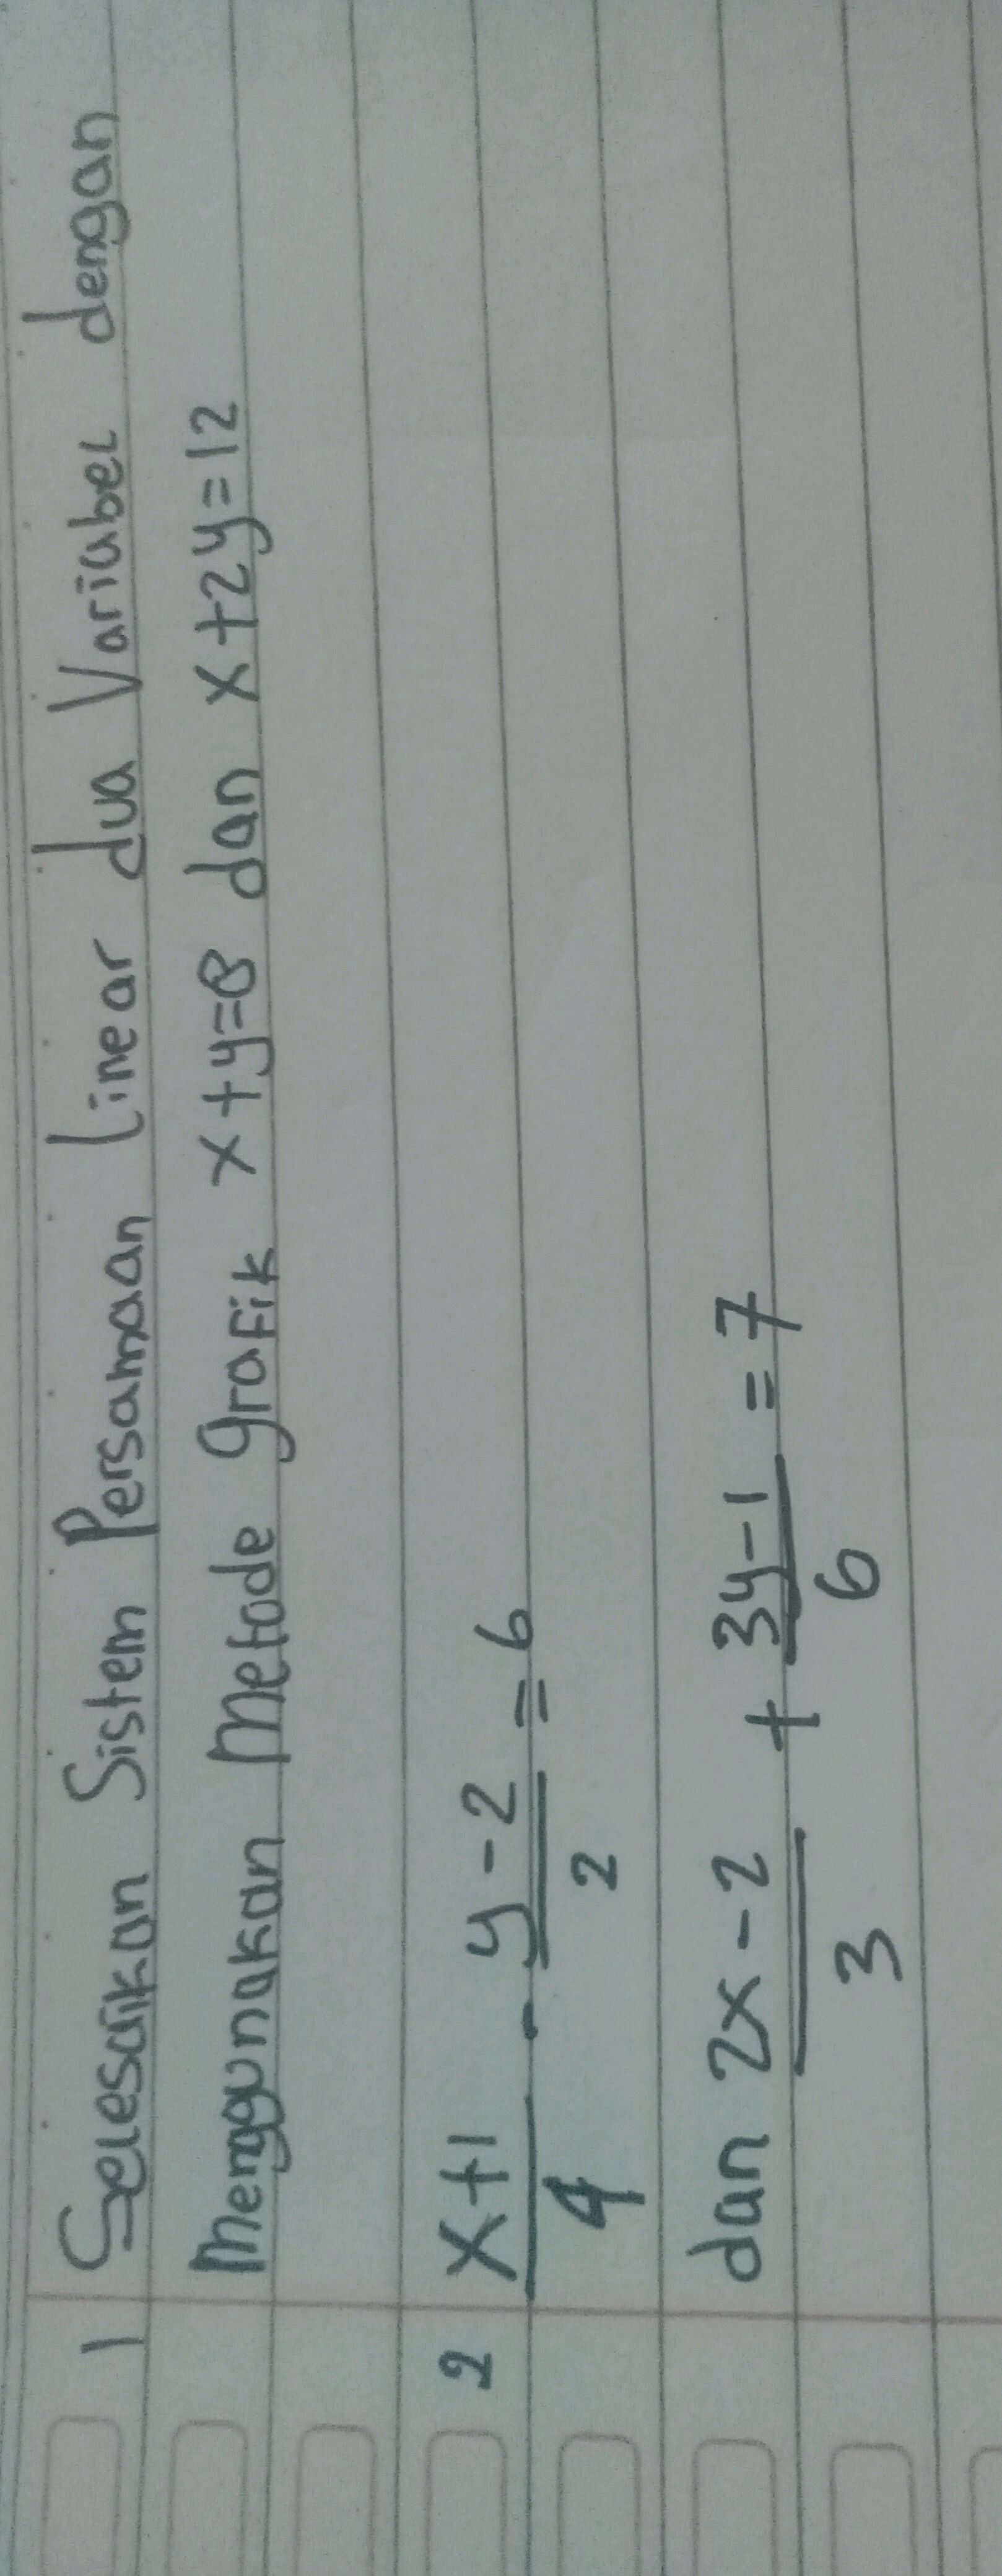 1 Selesaikan Sistem Persamaan Linear dua Variabel dengan
Menggunakan Metode grafik x+y=8 dan x+2y=12
2 x+1/4 - y-2/2 = 6
dan 2x-2/3 + 3y-1/6 = 7